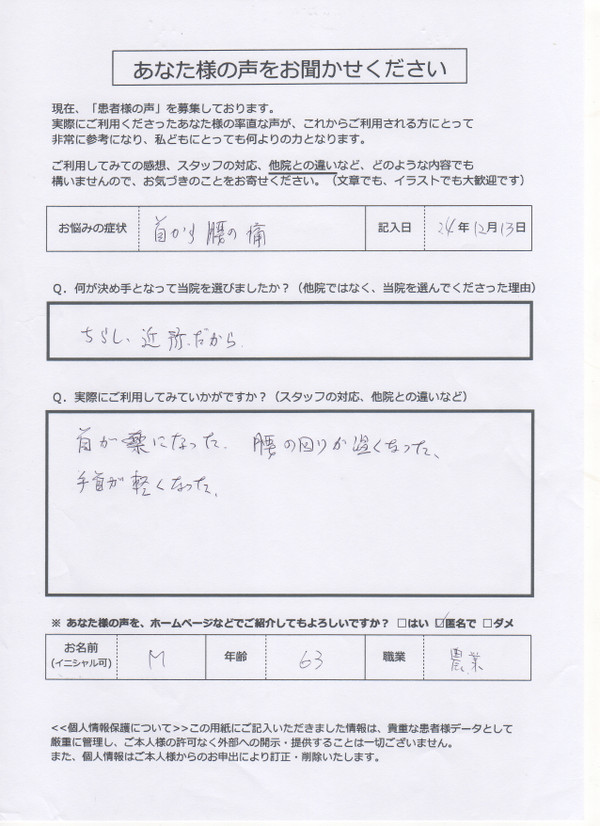 あなた様の声をお聞かせください
現在、「患者様の声」を募集しております。
実際にご利用くださったあなた様の率直な声が、これからご利用される方にとって
非常に参考になり、私どもにとっても何よりの力となります。
ご利用してみての感想、スタッフの対応、他院との違いなど、どのような内容でも
構いませんので、お気づきのことをお寄せください。（文章でも、イラストでも大歓迎です）
お悩みの症状 首から腰の痛 記入日 24年12月13日
Q．何が決め手となって当院を選びましたか？（他院ではなく、当院を選んでくださった理由）
ちらし、近所だから
Q．実際にご利用してみていかがですか？（スタッフの対応、他院との違いなど）
首が楽になった、腰の回りが温くなった、
手首が軽くなった、
※ あなた様の声を、ホームページなどでご紹介してもよろしいですか？ □はい ☑匿名で □ダメ
お名前 M 年齢 63 職業 農業
(イニシャル可)
<<個人情報保護について>>この用紙にご記入いただきました情報は、貴重な患者様データとして
厳重に管理し、ご本人様の許可なく外部への開示・提供することは一切ございません。
また、個人情報はご本人様からのお申出により訂正・削除いたします。